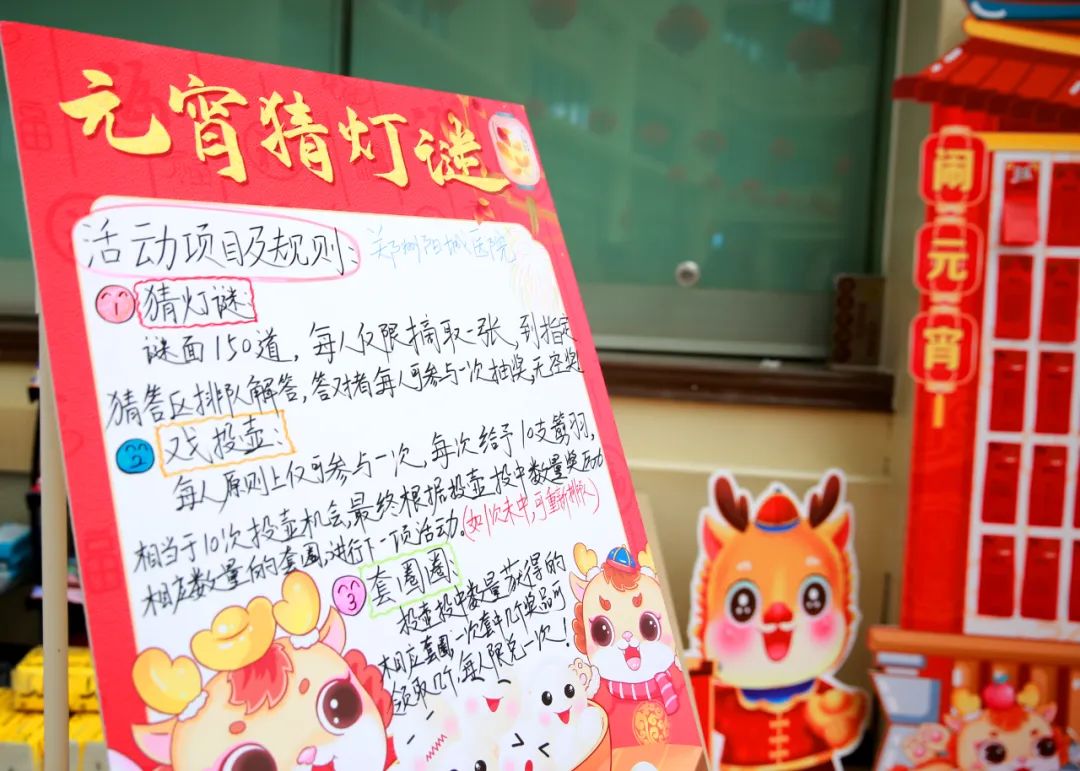 元宵猜灯谜
活动项目及规则:
郑州阳城医院
猜灯谜:
谜面150道,每人仅限摘取一张,到指定
猜答区排队解答,答对者每人可参与一次抽奖,无空奖
戏投壶:
每人原则上仅可参与一次,每次给予10支箭羽,
相当于10次投壶机会,最终根据投壶投中数量奖励
相应数量的套圈,进行下一项活动。(如1次未中,可重新排队)
套圈圈:
投壶投中数量获得的
相应套圈,一次套中几个奖品可
领取几个,每人限兑一次!
闹元宵